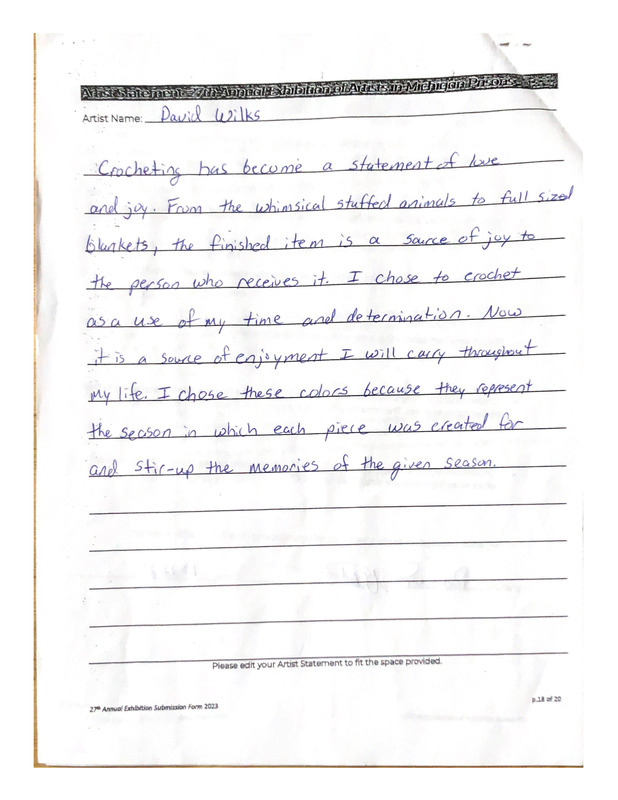 Artist Statement 27th Annual Exhibition of Artists in Michigan Prisons
Artist Name: David Wilks
Crocheting has become a statement of love
and joy. From the whimsical stuffed animals to full sized
blankets, the finished item is a source of joy to
the person who receives it. I chose to crochet
as a use of my time and determination. Now
it is a source of enjoyment I will carry throughout
my life. I chose these colors because they represent
the season in which each piece was created for
and stir-up the memories of the given season.
Please edit your Artist Statement to fit the space provided.
27th Annual Exhibition Submission Form 2023
p.18 of 20